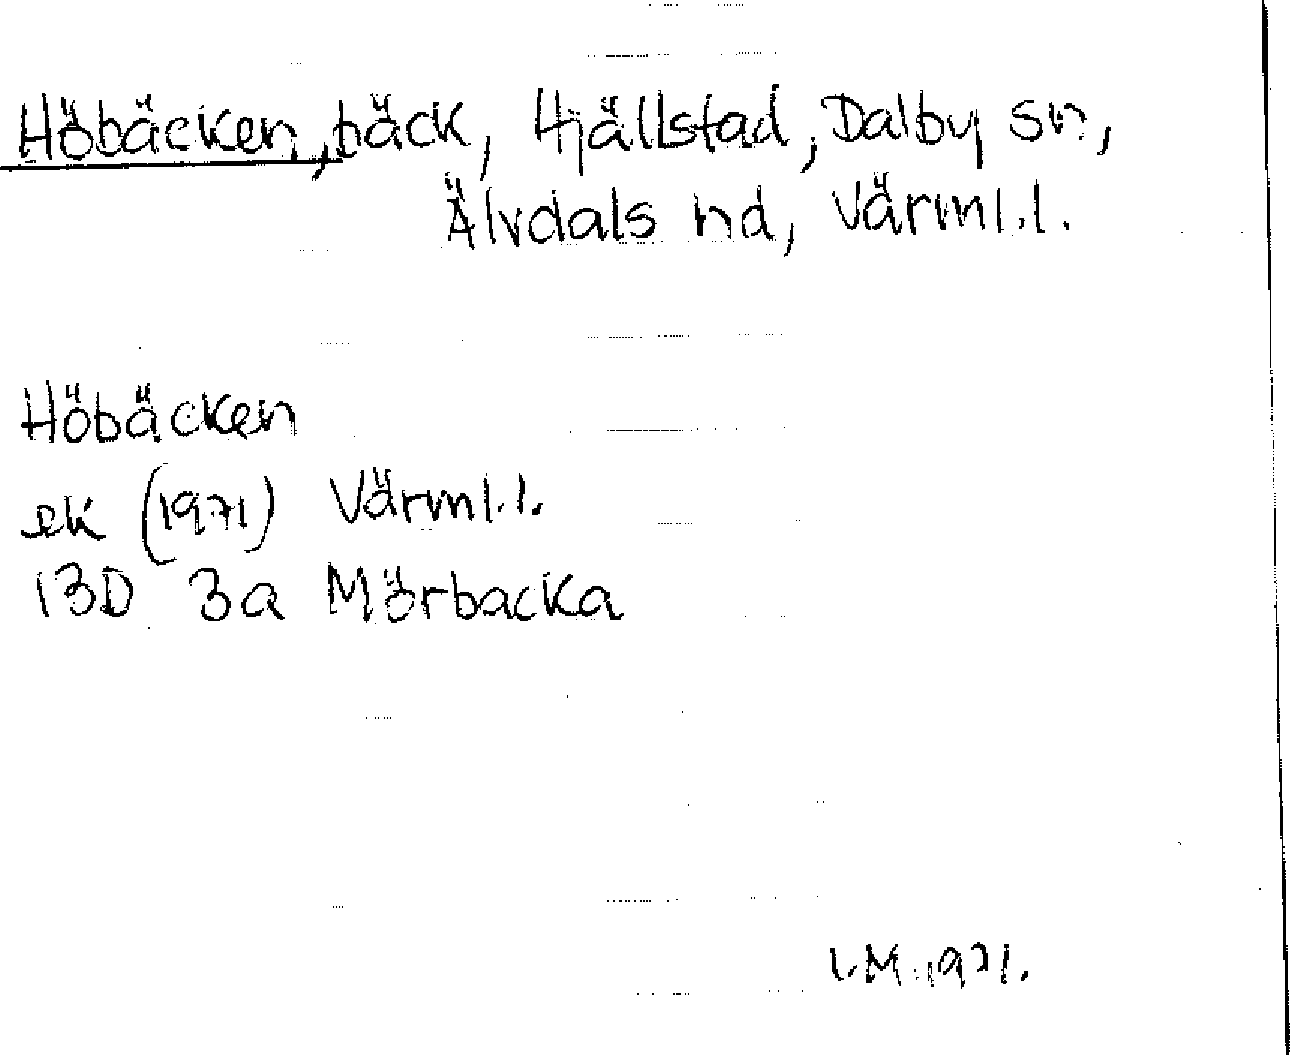 Höbäcken, bäck, Hjällstad, Dalby sn,
Älvdals hd, Värml.l.
Höbäcken
ek (1971) Värml.l.
13D 3a Mörbacka
I.M. 1971.